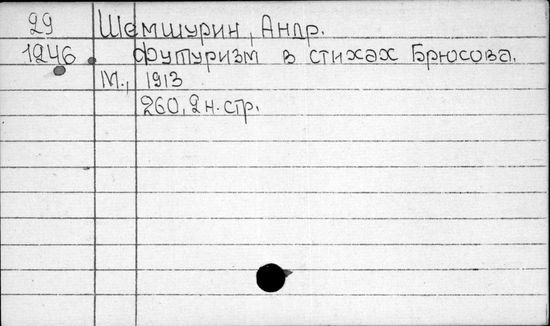 29 Шемшурин, Андр.
1246. Футуризм в стихах Брюсова.
М., 1913
260, 2 н. стр.